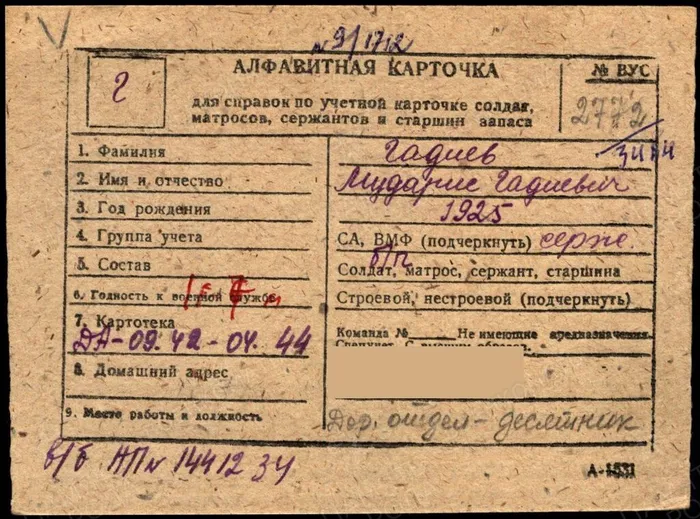 № 9/1712
АЛФАВИТНАЯ КАРТОЧКА
№ ВУС
Г
2772
для справок по учетной карточке солдат,
матросов, сержантов и старшин запаса
1. Фамилия
Гадиев
2. Имя и отчество
Мударис Гадиевич
3. Год рождения
1925
4. Группа учета
СА, ВМФ (подчеркнуть) серж.
5. Состав
б/п
Солдат, матрос, сержант, старшина
6. Годность к военной службе
Строевой, нестроевой (подчеркнуть)
7. Картотека
Команда № Не имеющие предназначения
ДА-09.42-04.44
8. Домашний адрес
9. Место работы и должность
Дор. отдел - десятник
в/б НП № 1441234
А-1531